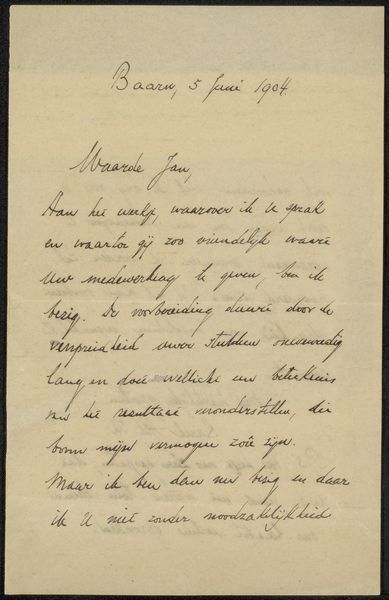 Baarn, 5 Juni 1904.
Waarde Jan,
Aan het werkje, waarover ik U sprak
en waartoe gij zoo vriendelijk waart
Uw medewerking te geven, ben ik
bezig. De voorbereiding duurt door de
verspreidheid uwer stukken onevenredig
lang en doet wellicht een beteekenis
van het resultaat veronderstellen, die
boven mijn vermogen zou zijn.
Maar ik ben dan nu bezig en daar
ik U niet zonder noodzakelijkheid